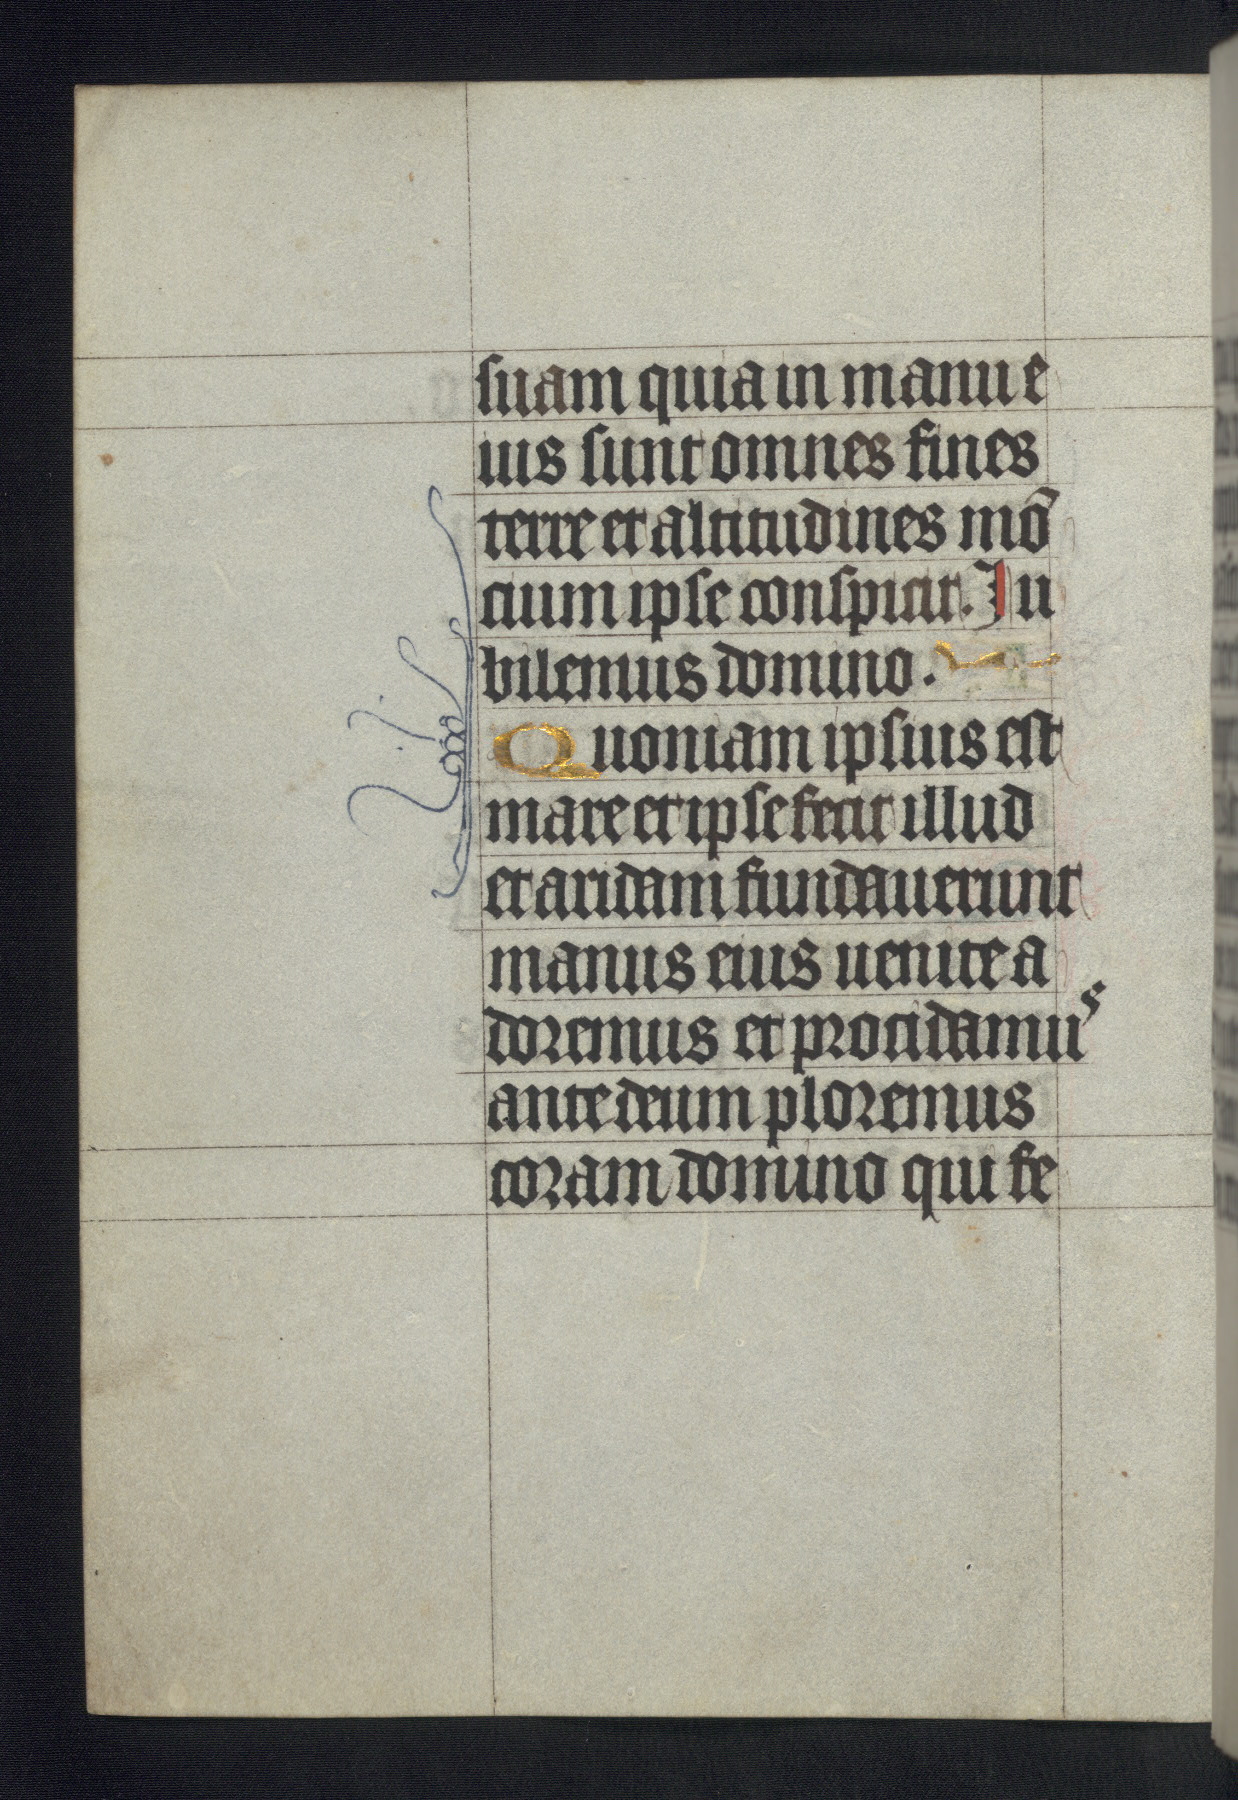 suam quia in manu e
ius sunt omnes fines
terre et altitudines mo̅
cium ipse conspicit. Iu
bilemus domino.
Quoniam ipsius est
mare et ipse fecit illud
et aridam fundauerunt
manus eius uenite a
doremus et procidamus
ante deum ploremus
coram domino qui fe